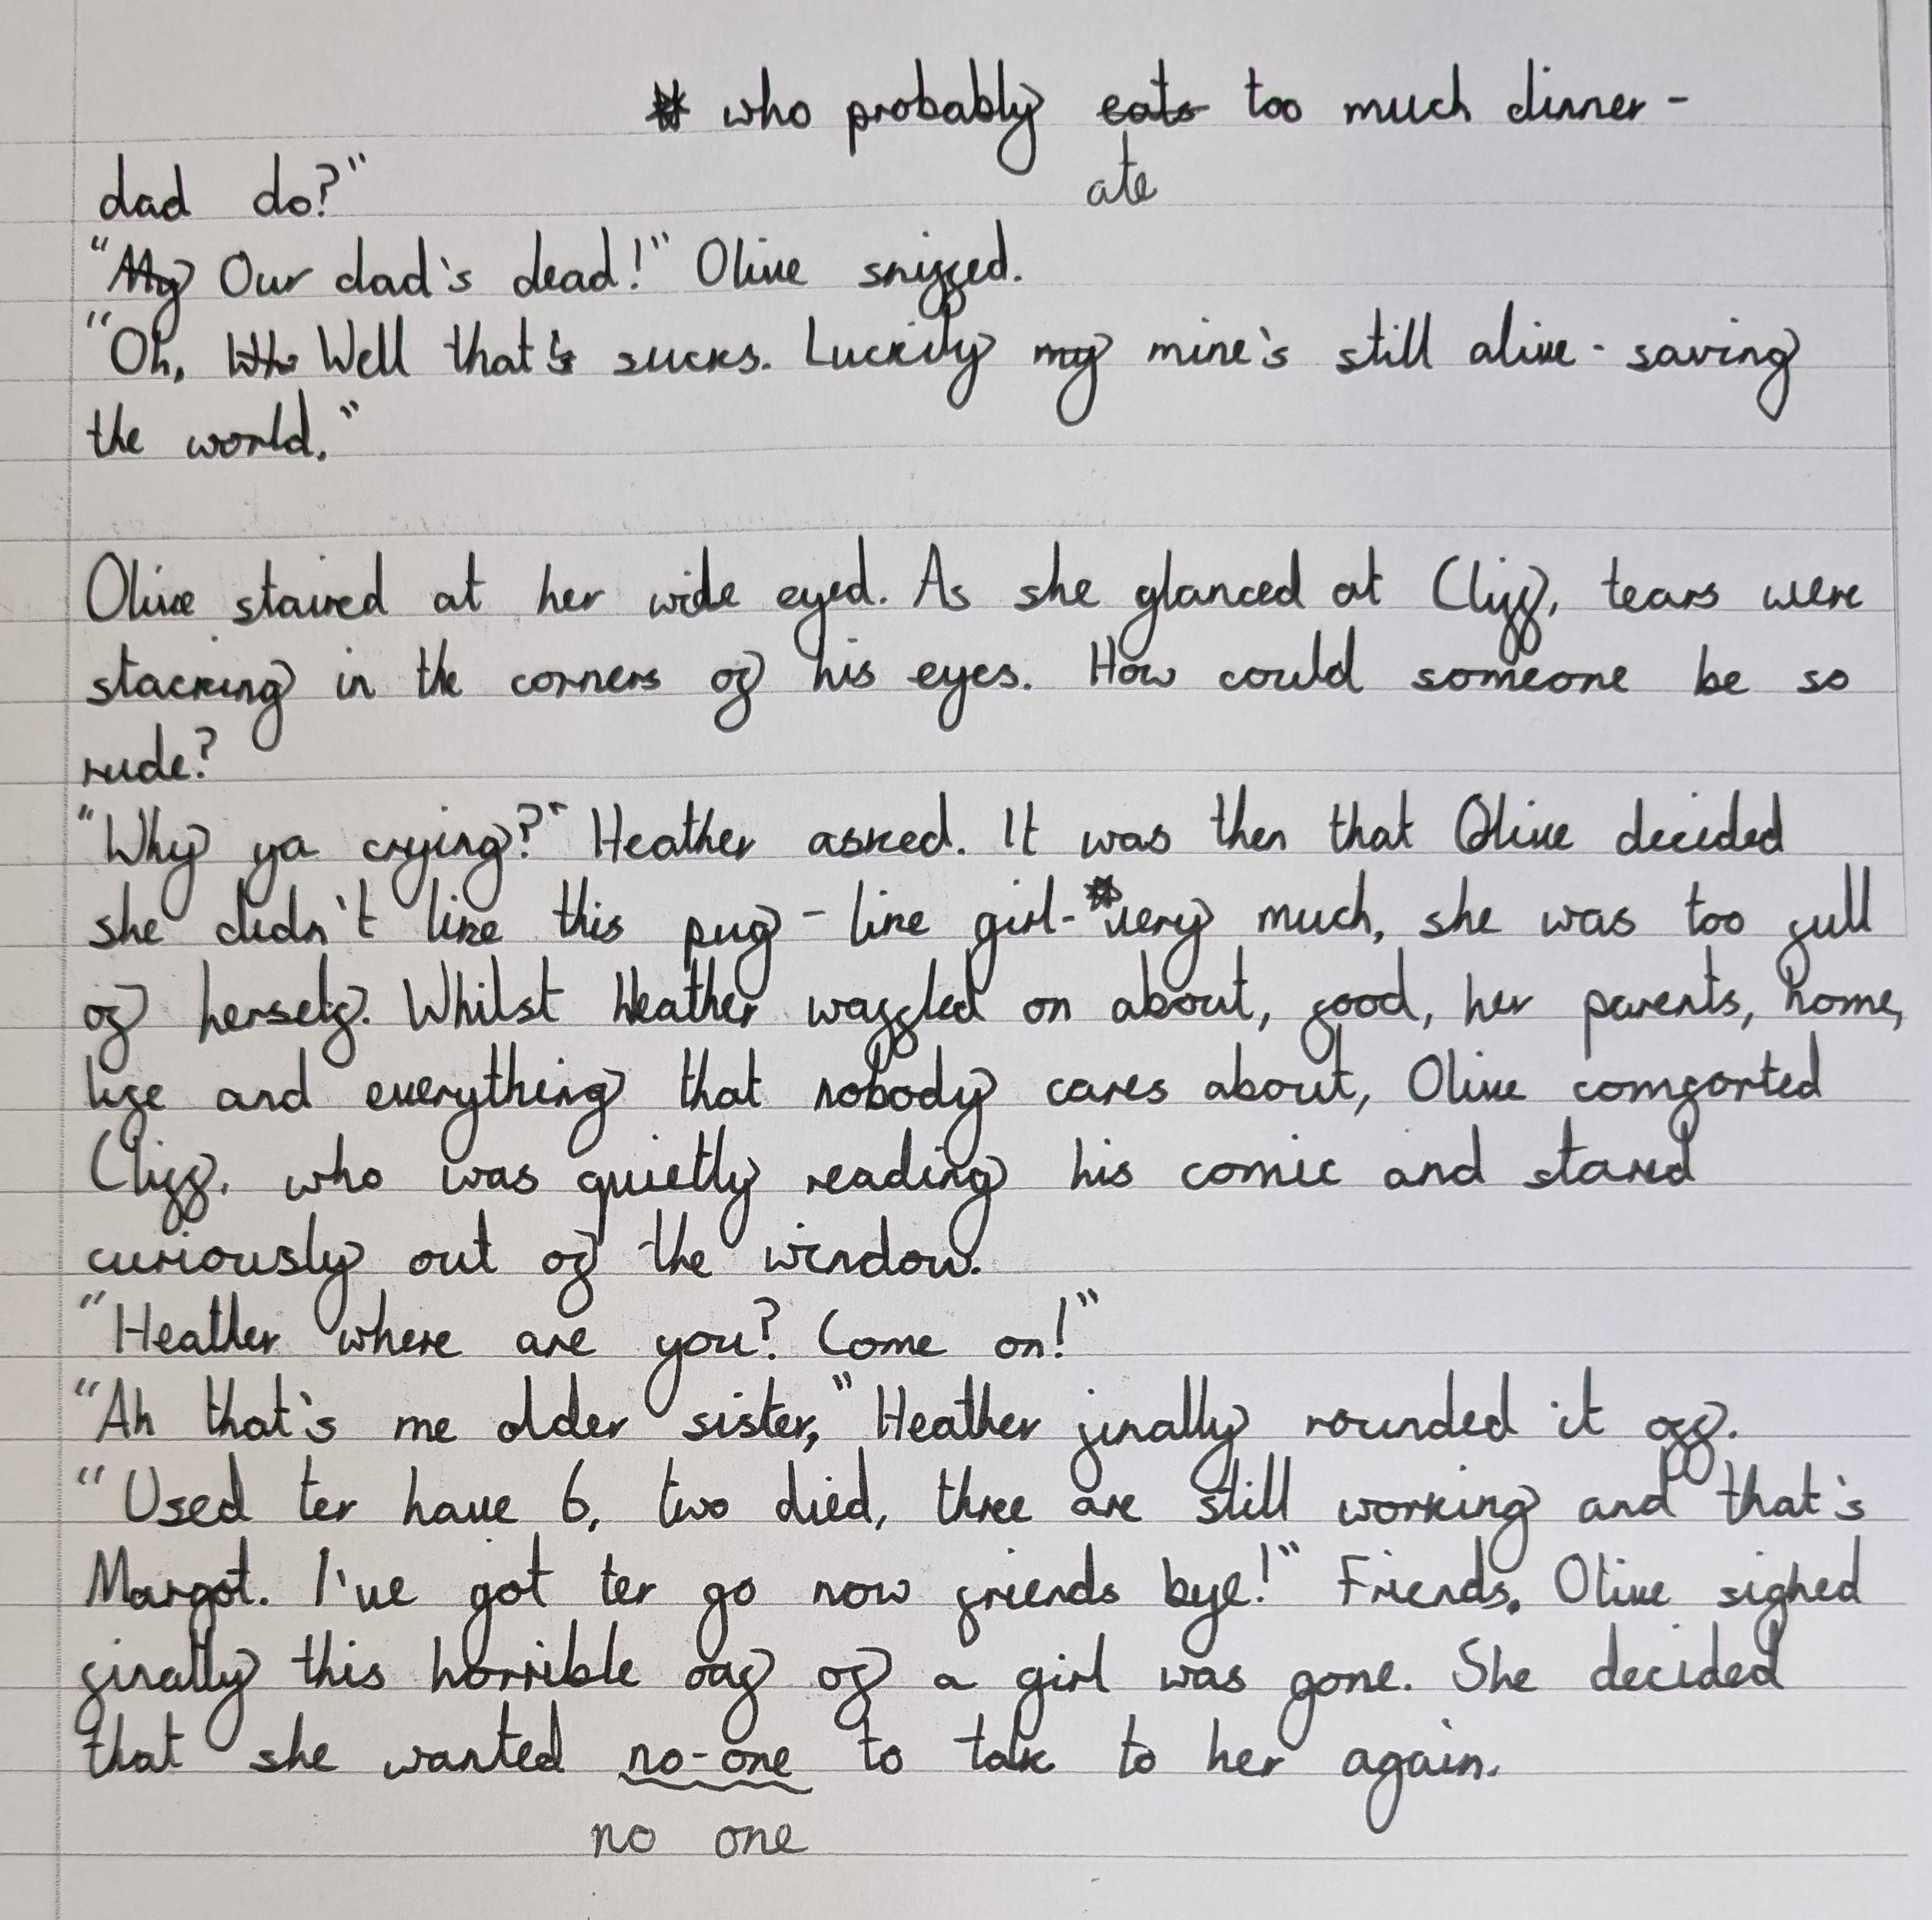 * who probably eats too much dinner -
ate
dad do?"
"My Our dad's dead!" Olive sniffed.
"Oh, Well that's sucks. Luckily my mine's still alive - saving
the world."
Olive staired at her wide eyed. As she glanced at Cliff, tears were
stacking in the corners of his eyes. How could someone be so
rude?
"Why ya crying?" Heather asked. It was then that Olive decided
she didn't like this pug - like girl - *very much, she was too full
of herself. Whilst Heather waffled on about, food, her parents, home,
life and everything that nobody cares about, Olive comforted
Cliff, who was quietly reading his comic and stared
curiously out of the window.
"Heather where are you? Come on!"
"Ah that's me older sister," Heather finally rounded it off.
"Used ter have 6, two died, three are still working and that's
Margot. I've got ter go now friends bye!" Friends. Olive sighed
finally this horrible oaf of a girl was gone. She decided
that she wanted no-one to talk to her again.
no one